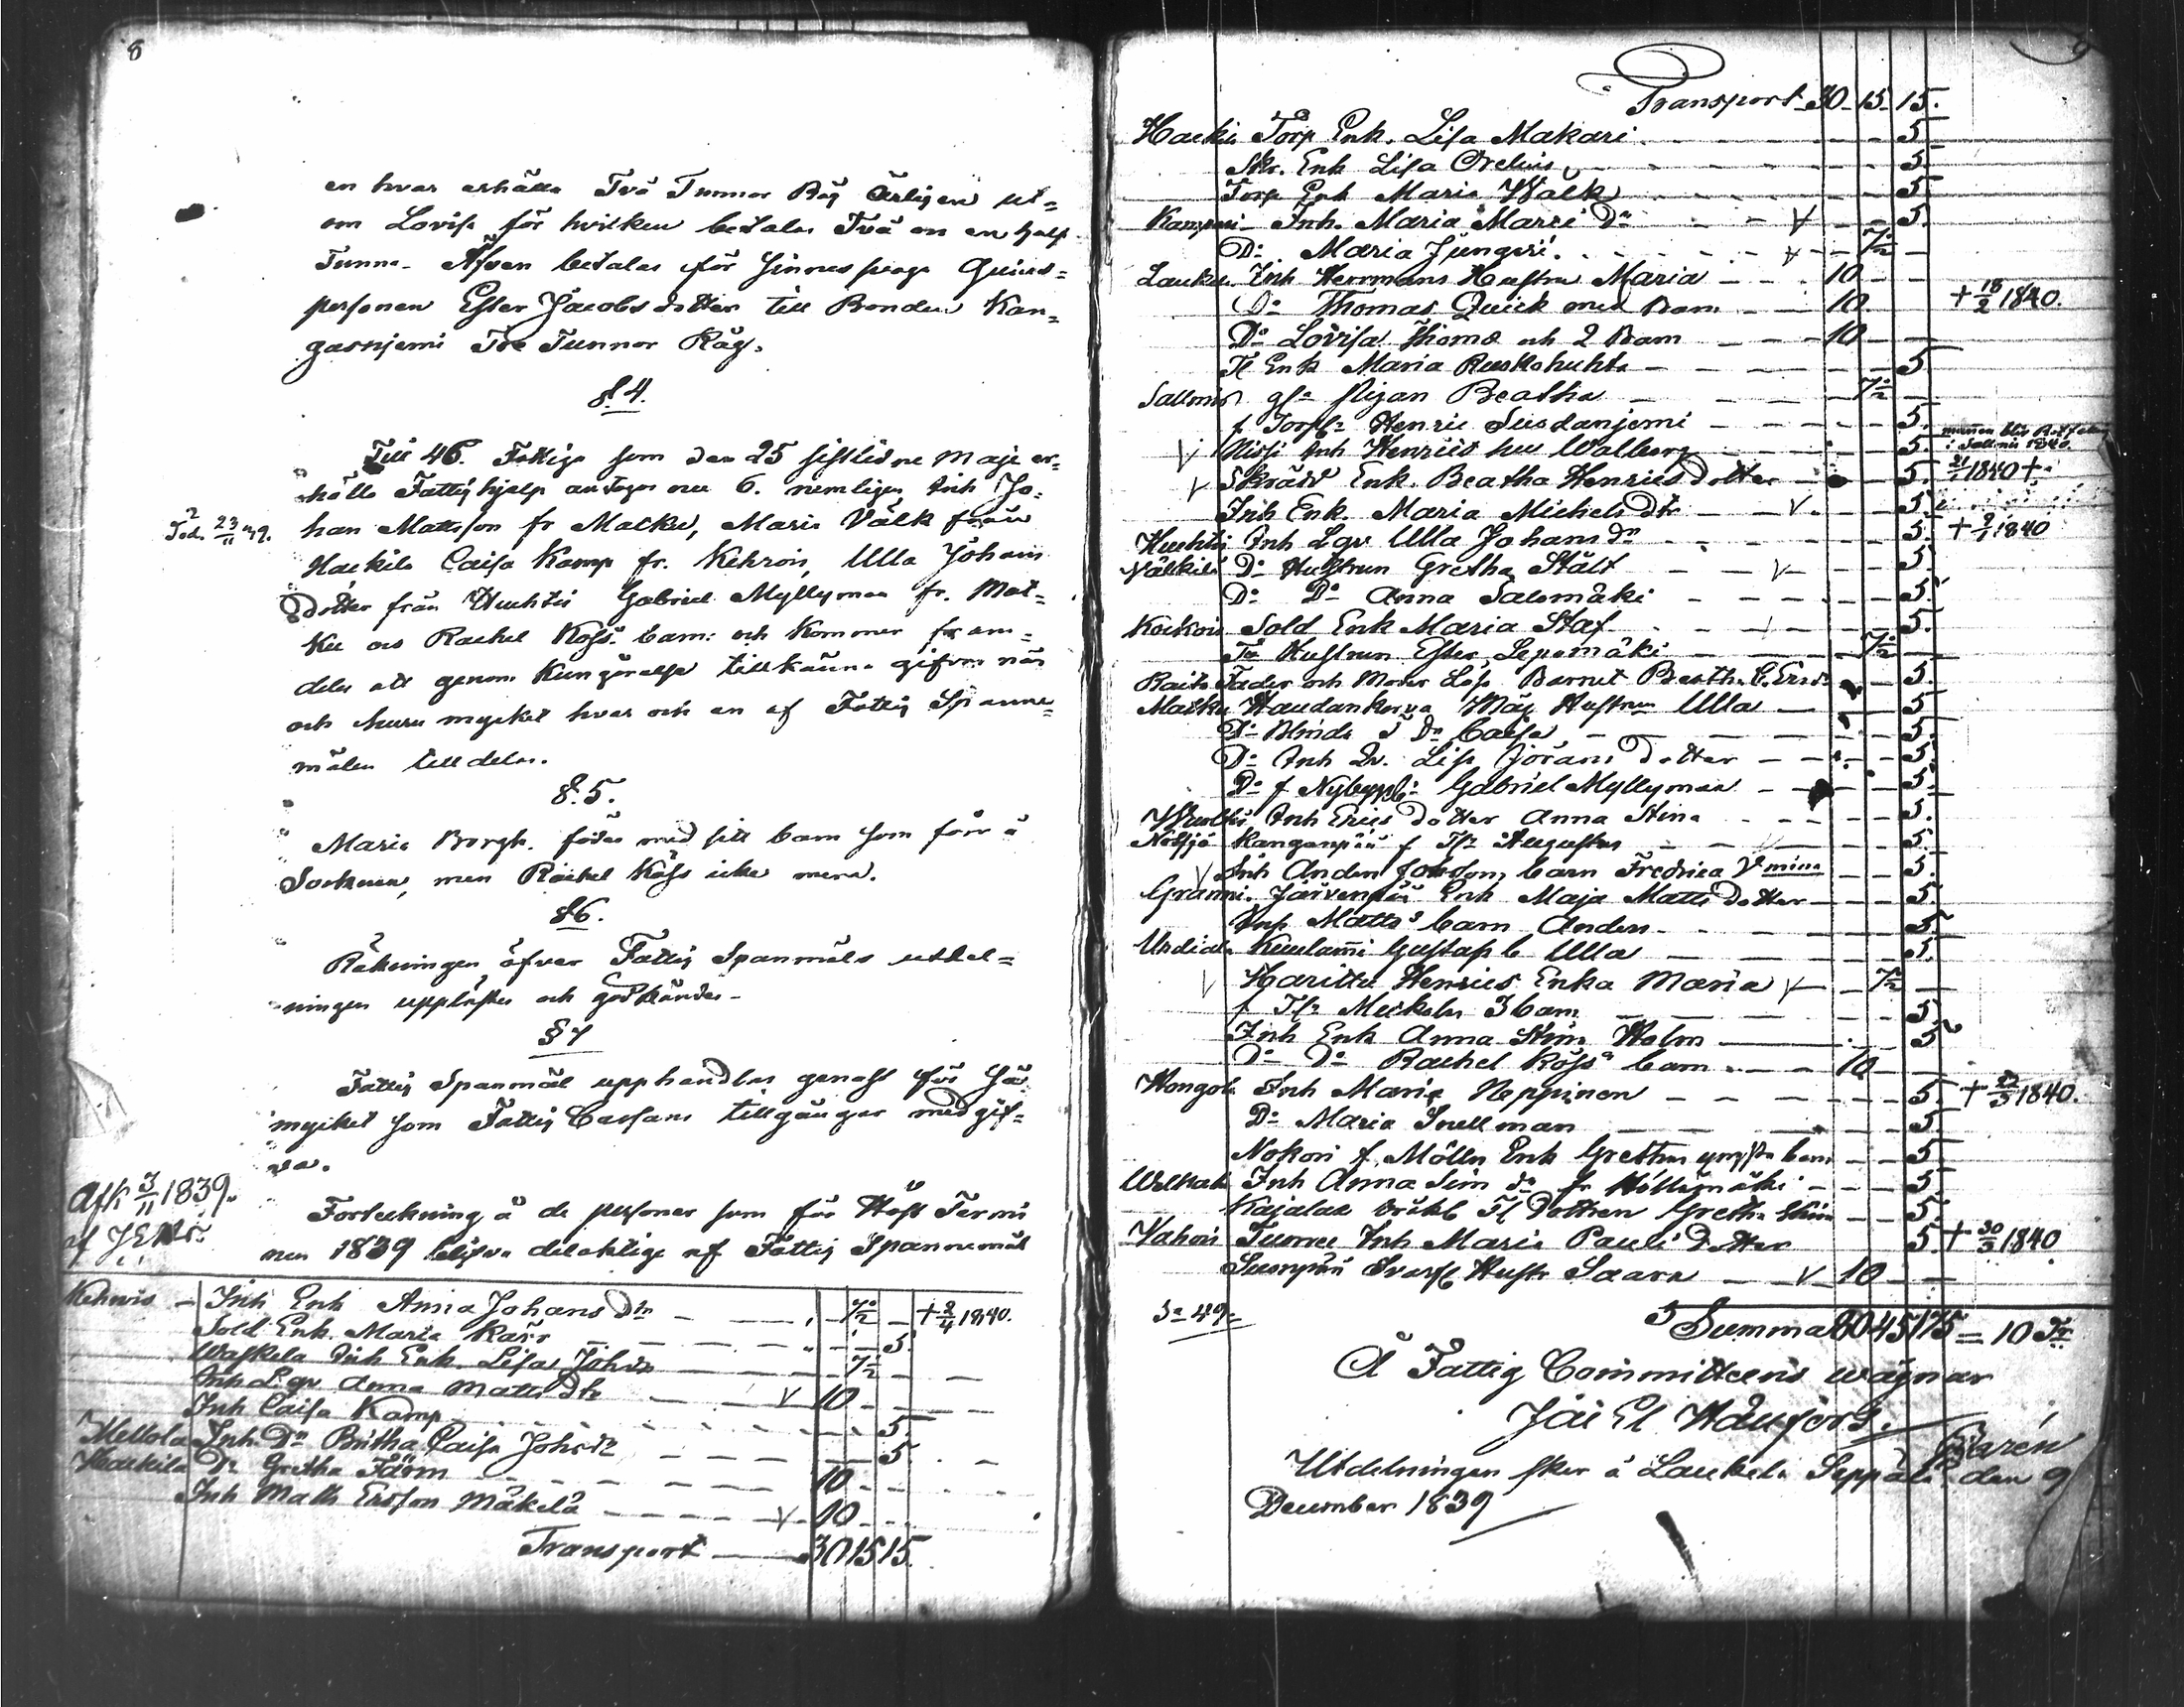 8
en hvar erhålla Två Tunnor Råg Årligen ut=
om Lovisa för hvilken betalas Två en half
Tunna. Äfven betalas för Qvins=
personen Ester Jacobs dotter till Bonden Kan=
gasnjemi Två Tunnor Råg.
§ 4.
Till 46. Fattiga som den 25 sistledne Maji er=
hållo Fattighjelp antogos nu 6. nemligen Inh Jo=
han Mattsson fr Matku, Maria Välk från
Haekila Caisa Kamp fr. Kehrois, Ulla Johans
Dotter från Huhtis Gabriel Myllyman fr. Mat=
ku och Rachel Köss barn: och kommer fram=
deles att genom Kungörelse tillkänna gifvas när
och huru mycket hvar och en af Fattig Spanne=
målen tilldelas.
§. 5.
Maria Borgh. födes med sitt barn som förr å
Socknen, men Rachel Köss icke mera.
§ 6.
Räkningen öfver Fattig Spanmåls utdel=
ningen upplästes och godkändes.
§ 7
Fattig Spanmål upphandlas genast för så
mycket som Fattig Cassans tillgångar medgif=
va.
Afk 3/11 1839.
Förteckning å de personer som för Höst Termi
nen 1839 blifva delaktige af Fattig Spannemål
Kehrois Inh Enk Anna Johans Dr 7½ + 2/4 1840.
Sold Enk. Maria Karr 5
Waskela Inh Enk. Lisa Johsdr 7½
Inh L. qv Anna Matts Dr V 10
Inh Caisa Kamp 5
Mellola Inh. Dr Britha Caisa Johsdr 5
Haekila Do Gretha Färm 10
Inh Matts Ersson Mäkelä V 10
Transport 30 15 15.
9
Transport 30 15 15.
Haekila Torp Enk. Lisa Makari 5
Skr. Enk Lisa Orelius 5.
Torp Enk Maria Wälk 5
Kamppi Inh. Maria Matts Dr V 5.
Do Maria Jungeri V 7½
Laukee Inh Hermans Hustru Maria 10
Do Thomas Quick med Barn 10. + 18/2 1840.
Do Lovisa Thoms och 2 Barn 10
Tl Enk Maria Ruskohuhta 5
Sallmis gl. Pigan Beatha 7½
f Torp: Henric Susdanjemi 5.
V Nissi Inh Henrics hu Walborg 5. i Sallmis 1840.
V Skrädd Enk. Beatha Henricsdotter 5. 1840 +
Inh Enk. Maria Michelsdtr V. 5
Huhtis Inh L qv Ulla Johansdr 5. + 9/1 1840
Välkilä Do Hustrun Gretha Stålt V 5
Do Do Anna Salomäki 5
Koikois Sold Enk Maria Staf 5.
To Hustrun Ester Lepomäki 7½
Fader och Moder Lösa Barnet 5.
Matku Haudankorva Måg Hustrun Ulla 5
Do Blinda Dr Caisa 5.
Do Inh Lisa Jörans Dotter 5.
Do f Nybygg: Gabriel Myllyman 5
Inh Erics Dotter Anna Stina 5.
Kanganpää f Augustus 5
V Inh Anders Johsons barn Fredrica V mina 5.
Järvenpää Enk Maja Matts Dotter 5.
Inh Matts barn Anders 5
Urdiala Kuulami Gustafs b Ulla 5.
V Haritta Henrics Enka Maria V 7½
f Tl: Meckelas 3 barn 5
Inh Enk Anna Stina Holm 5
Do Do Rachel Köss barn 10
Hongola Inh Maria Heppinen 5. + 1840.
Do Maria Snellman 5
Nokois f. Mölln Enk Grethas yngsta barn 5
Inh Anna Sim dr fr 5
Kajalax Tl Dottren Gretha Stina 5.
Vahois Tuomee Inh Maria Pauls Dotter 5. + 30/3 1840
Sumpää Hustr Saara V 10
Sa 49.
Summa 80 45 175 = 10 Tr
Å Fattig Committeens wägnar
Utdelningen sker å Laukela Seppälä den 9
December 1839